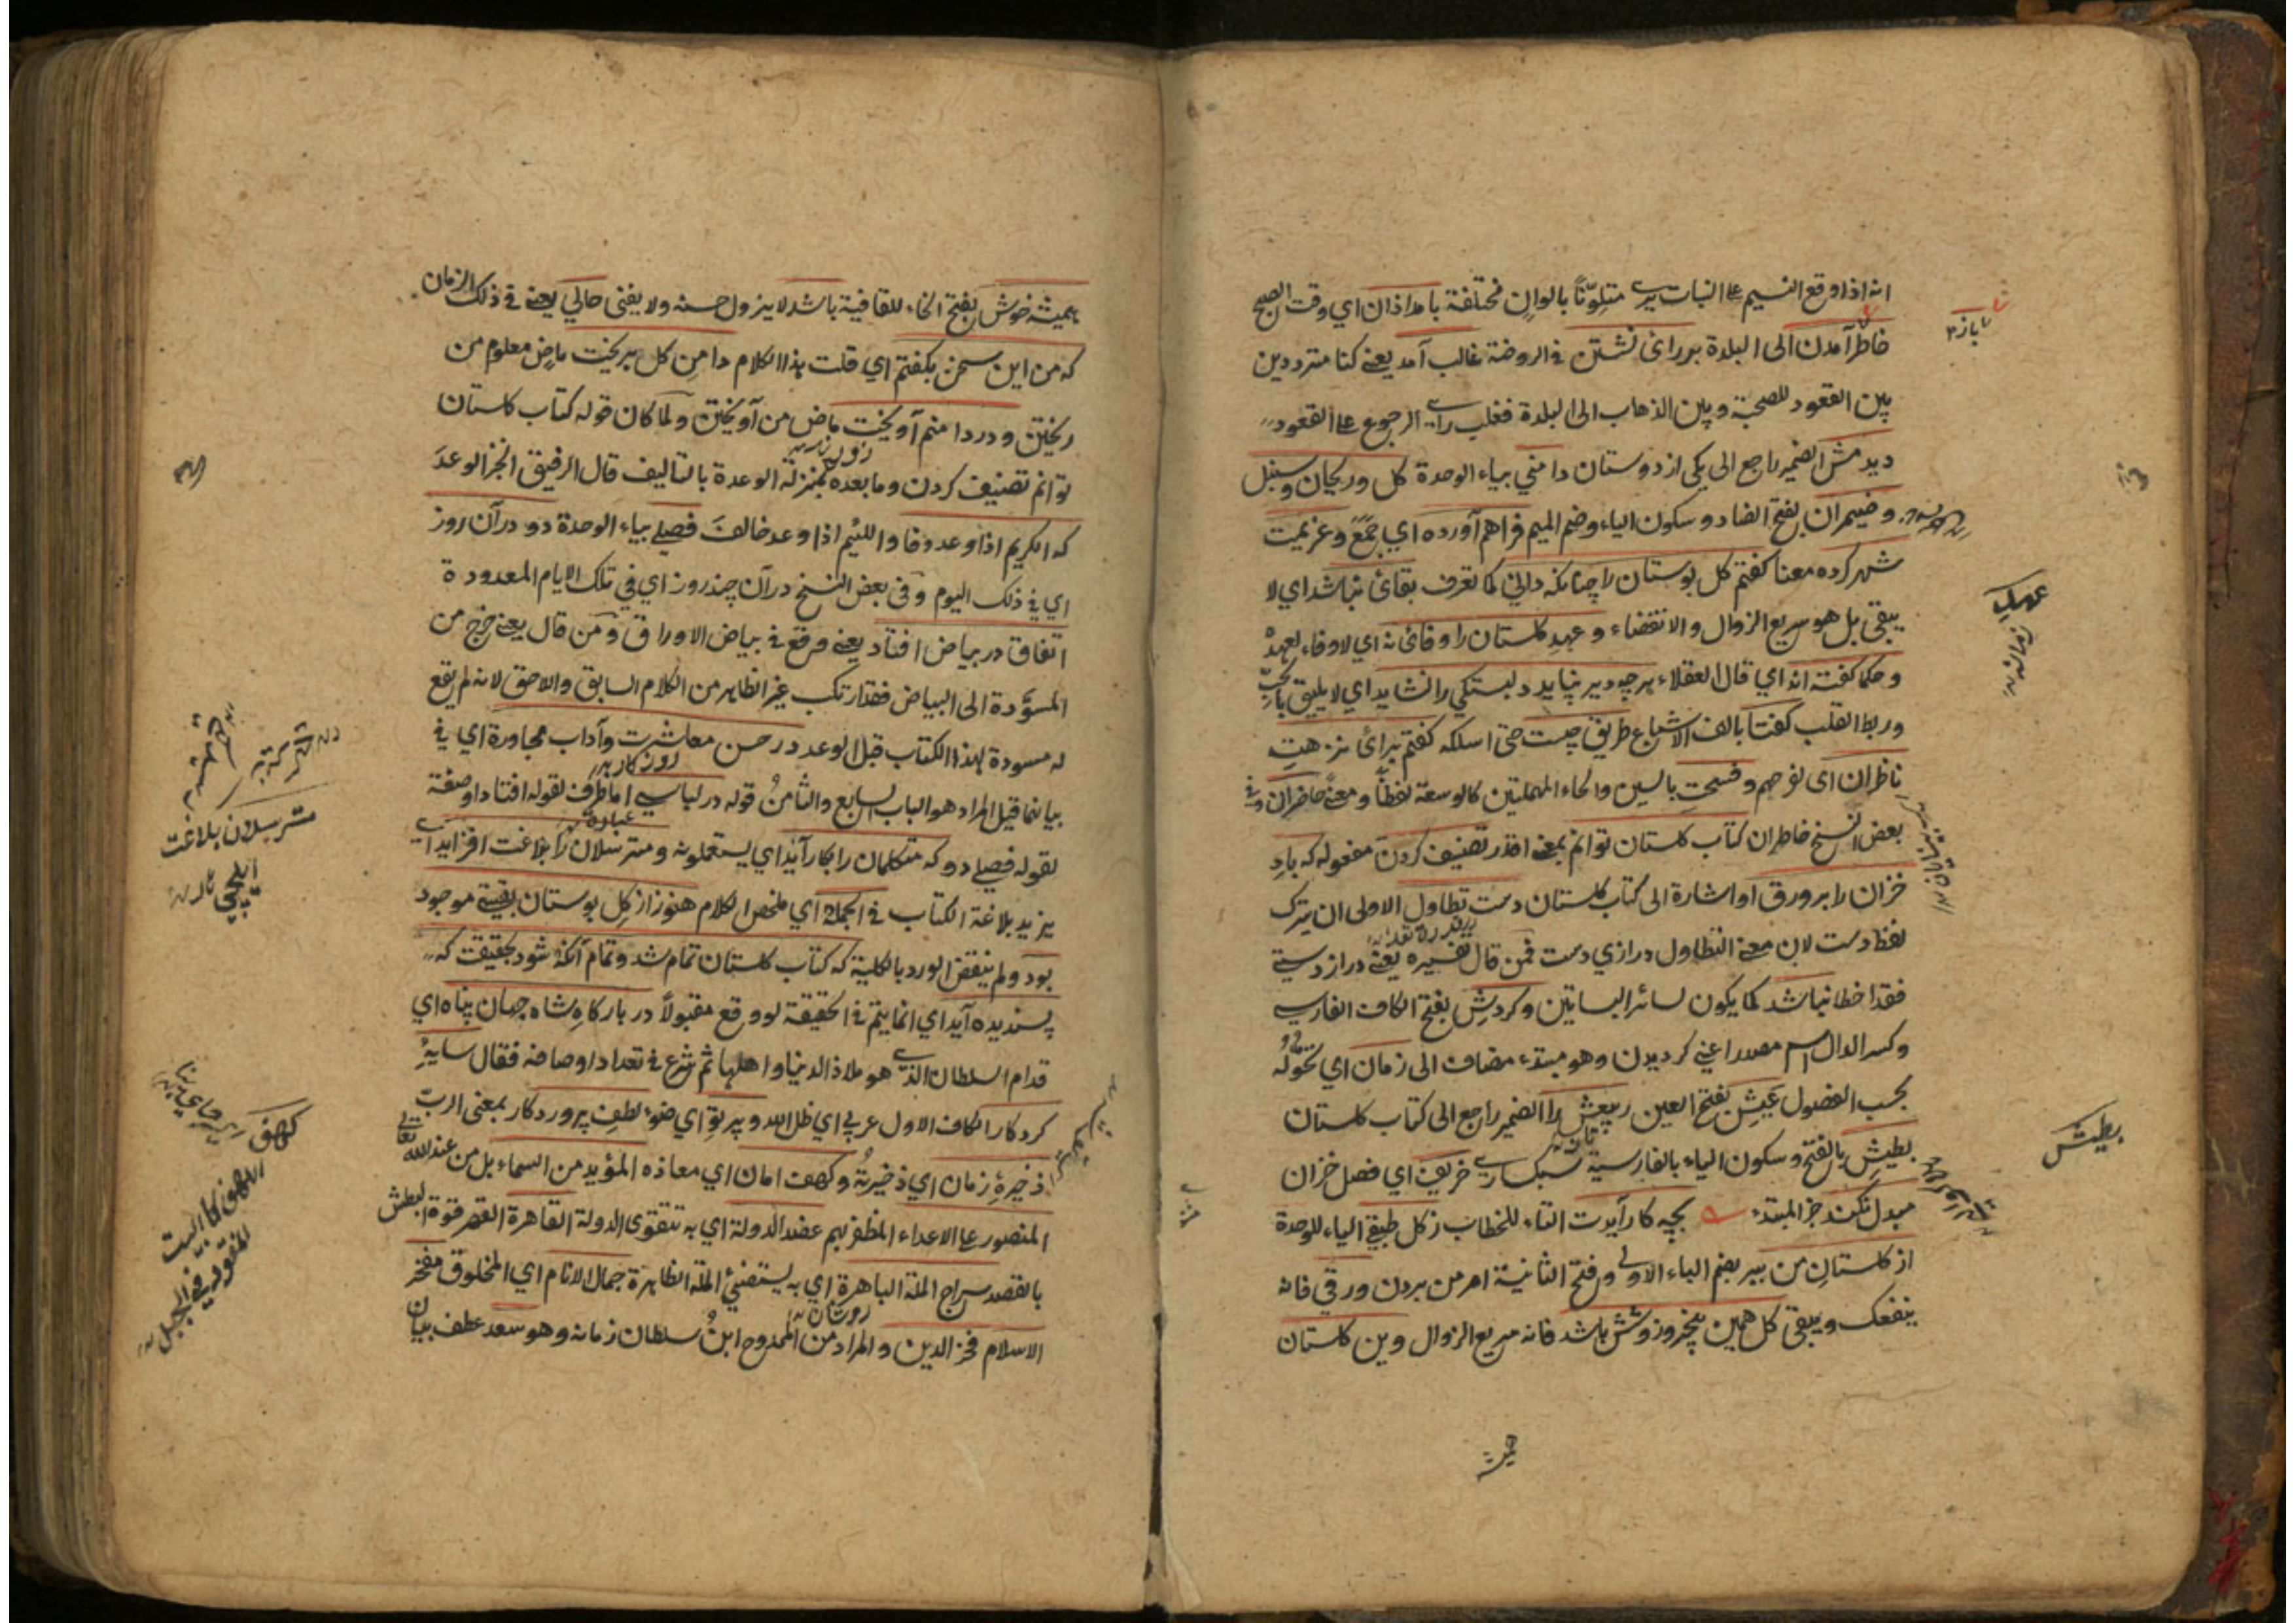 انه اذا وقع النسيم علی النبات یری متلوّنًا بالوان مختلفة بامداذان اي وقت الصبح
خاطر آمدن الى البلدة بررائ نشتن في الروضة غالب آمد يعني كنا مترددين
بين القعود للصحبة وبين الذهاب الى البلدة فغلب رأي الرجوع علی القعود
ديدمش الضمير راجع الى يكى از دوستان دامني بياء الوحدة كل وريحان وسنبل
وضيمران بفتح الضاد وسكون الياء وضم الميم فراهم آورده اي جمع وعزيمت
شهر كرده معنا كفتم كل بوستان را چنانكه داني كما تعرف بقائ نباشد اي لا
يبقى بل هو سريع الزوال والانقضاء وعهد كلستان را وفائ نه اي لا وفاء لعهده
وحكما كفته اند اي قال العقلاء هرچه دير نپايد دلبستكي را نشايد اي لا يليق بالحبّ
وربط القلب كفتا بالف الاشباع طريق چيست حتى اسلكه كفتم براى نزهت
ناظران اى تفرجهم وفسحت بالسين والحاء المهملتين كالوسعة لفظًا ومعنًى حاضران وفي
بعض النسخ خاطران كتاب كلستان توانم بمعنى اقدر تصنيف كردن مفعوله كه باد
خزان را بر ورق او اشارة الى كتاب كلستان دست تطاول الاولى ان يترك
لفظ دست لان معنى التطاول درازي دست فمن قال تفسيره يعني دراز دستي
فقد اخطا نباشد كما يكون لسائر البساتين وكردش بفتح الكاف الفارسي
وكسر الدال اسم مصدر اعني كرديدن وهو مبتدء مضاف الى زمان اي تحوله
بحسب الفصول عيش بفتح العين ربيعش را الضمير راجع الى كتاب كلستان
بطيش بالفتح وسكون الياء بالفارسية سبكساري خريف اي فصل خزان
مبدل نكند خبر المبتدء بچه كار آيدت التاء للخطاب ز كل طبقي الياء للوحدة
از كلستان من ببر بضم الباء الاولى وفتح الثانية امر من بردن ورقي فانه
ينفعك ويبقى كل همين پنج روز وشش باشد فانه سريع الزوال وين كلستان
عهد
بطيش
هميشه
هميشه خوش بفتح الخاء للقافية باشد لا يزول حسنه ولا يفنى حالي يعني في ذلك الزمان
كه من اين سخن بكفتم اي قلت هذا الكلام دامن كل بريخت ماض معلوم من
ريختن ودر دامنم آويخت ماض من آويختن ولما كان قوله كتاب كلستان
توانم تصنيف كردن وما بعده بمنزلة الوعدة بالتاليف قال الرفيق انجز الوعد
كه الكريم اذا وعد وفا واللئيم اذا وعد خالف فصلي بياء الوحدة دو در آن روز
اي في ذلك اليوم وفى بعض النسخ در آن چند روز اي في تلك الايام المعدودة
اتفاق در بياض افتاد يعني وقع في بياض الاوراق ومن قال يعني خرج من
المسوّدة الى البياض فقد ارتكب غير الظاهر من الكلام السابق والاحق لانه لم يقع
له مسودة لهذا الكتاب قبل الوعد در حسن معاشرت وآداب مجاورة اي في
بيانهما قيل المراد هو الباب السابع والثامن قوله در لباسي اما ظرف لقوله افتاد او صفة
لقوله فصلي دو كه متكلمان را بكار آيد اي يستعملونه ومترسلان را بلاغت افزايد اي
يزيد بلاغة الكتاب في الجملة اي ملخص الكلام هنوز از كل بوستان بقيتي موجود
بود ولم ينقض الورد بالكلية كه كتاب كلستان تمام شد وتمام آنكه شود بحقيقت كه
پسنديده آيد اي انما يتم في الحقيقة لو وقع مقبولاً در باركاه شاه جهان پناه اي
قدام السلطان الذي هو ملاذ الدنيا واهلها ثم شرع في تعداد اوصافه فقال سايهٔ
كردكار الكاف الاول عربي اي ظل الله وپرتو اي ضوء لطف پروردكار بمعنى الربّ
ذخيرهٔ زمان اي ذخيرته وكهف امان اي معاذه المؤيد من السماء بل من عند الله تعالى
المنصور على الاعداء المظفر بهم عضد الدولة اي به تتقوى الدولة القاهرة القهر قوة البطش
بالقصد سراج الملة الباهرة اي به يستضيئ الملة الظاهرة جمال الانام اي المخلوق مفخر
الاسلام فخر الدين والمراد من الممدوح ابن سلطان زمانه وهو سعد عطف بيان
مترسلان بلاغت
ايلچي
كهف
الكهف كالبيت
المنقور في الجبل